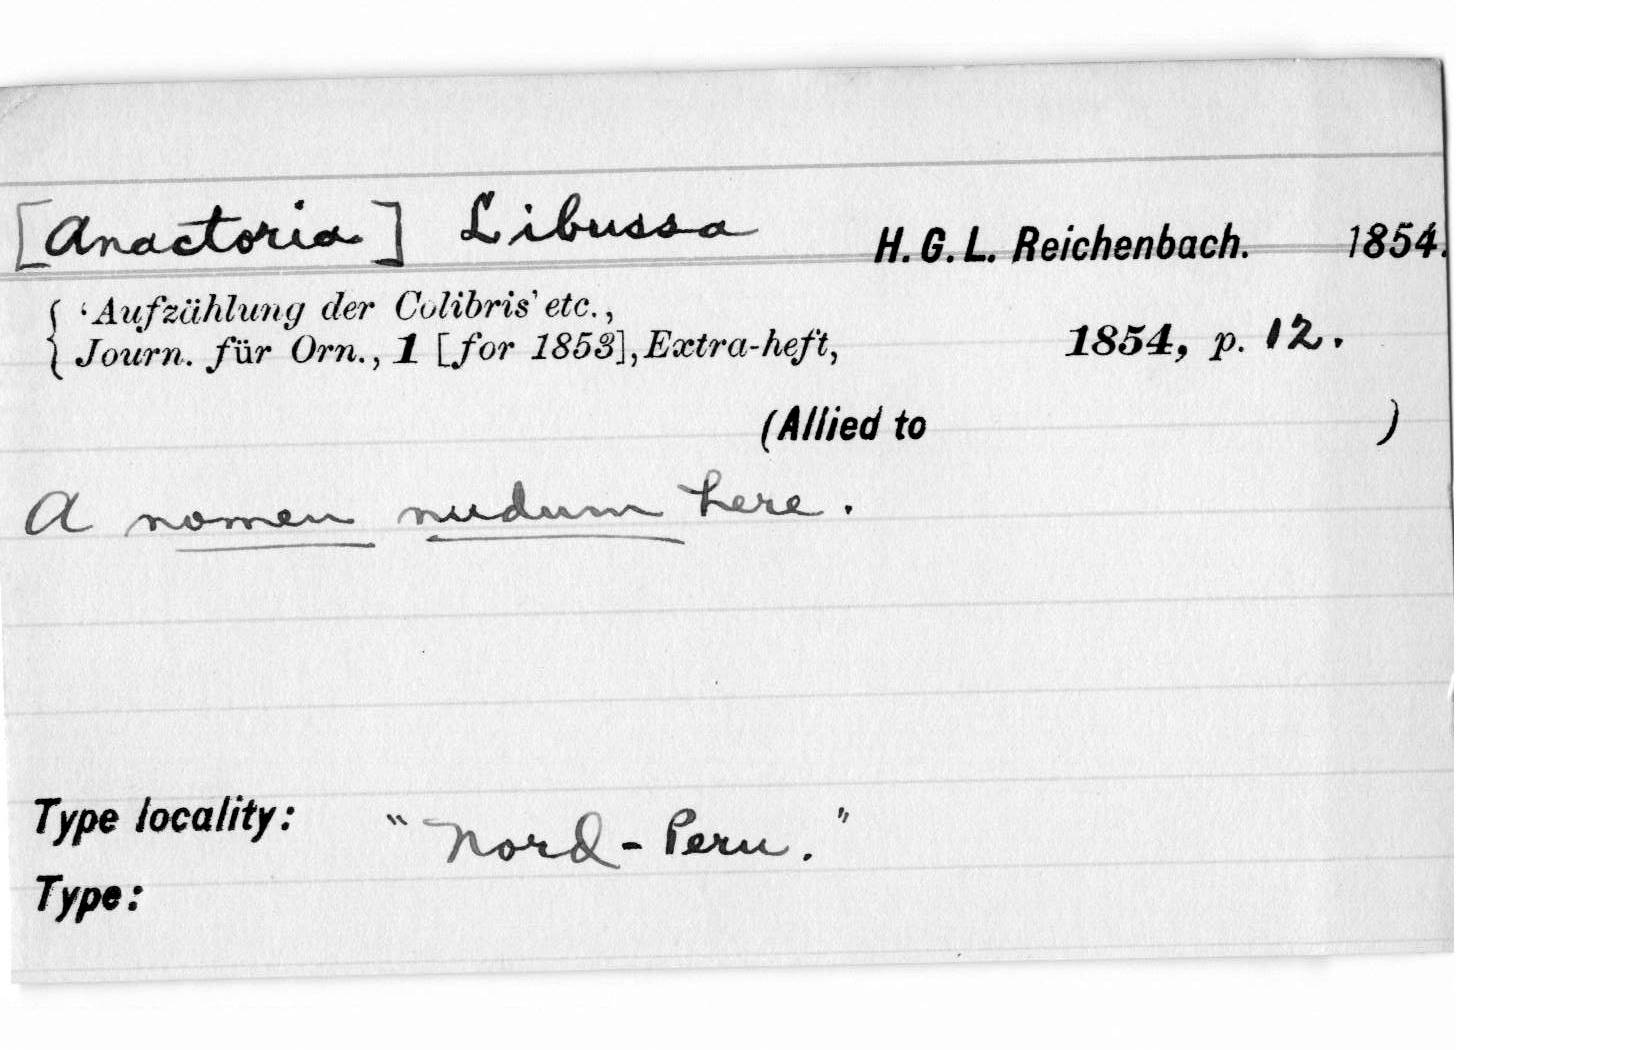 [Anactoria] Libussa H. G. L. Reichenbach. 1854.
{ 'Aufzählung der Colibris' etc.,
Journ. für Orn., 1 [for 1853], Extra-heft, 1854, p. 12.
(Allied to )
A nomen nudum here.
Type locality: "Nord-Peru."
Type: